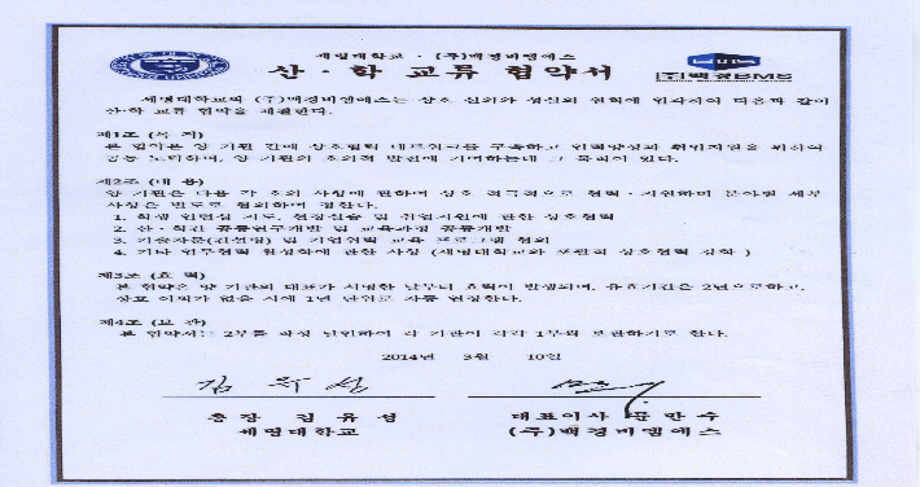 세명대학교 · (주)백경비엠에스
산 · 학 교류 협약서
(주)백경BMS
세명대학교와 (주)백경비엠에스는 상호 신의와 성실의 원칙에 입각하여 다음과 같이
산학 교류 협약을 체결한다.
제1조 (목 적)
본 협약은 양 기관 간에 상호협력 네트워크를 구축하고 인력양성과 취업지원을 위하여
공동 노력하며, 양 기관의 호의적 발전에 기여하는데 그 목적이 있다.
제2조 (내 용)
양 기관은 다음 각 호의 사항에 관하여 상호 적극적으로 협력 · 지원하며 분야별 세부
사항은 별도로 협의하여 정한다.
1. 학생 인턴십 지도, 현장실습 및 취업지원에 관한 상호협력
2. 산 · 학간 공동연구개발 및 교육과정 공동개발
3. 기술자문(컨설팅) 및 기업위탁 교육 프로그램 협의
4. 기타 업무협력 활성화에 관한 사항 (세명대학교와 포괄적 상호협력 강화 )
제3조 (효 력)
본 협약은 양 기관의 대표가 서명한 날부터 효력이 발생되며, 유효기간은 2년으로하고,
상호 이의가 없을 시에 1년 단위로 자동 연장한다.
제4조 (보 관)
본 협약서는 2부를 작성 날인하여 각 기관이 각각 1부씩 보관하기로 한다.
2014년 3월 10일
김유성
총장 김 유 성
대표이사 문 만 수
세명대학교
(주)백경비엠에스